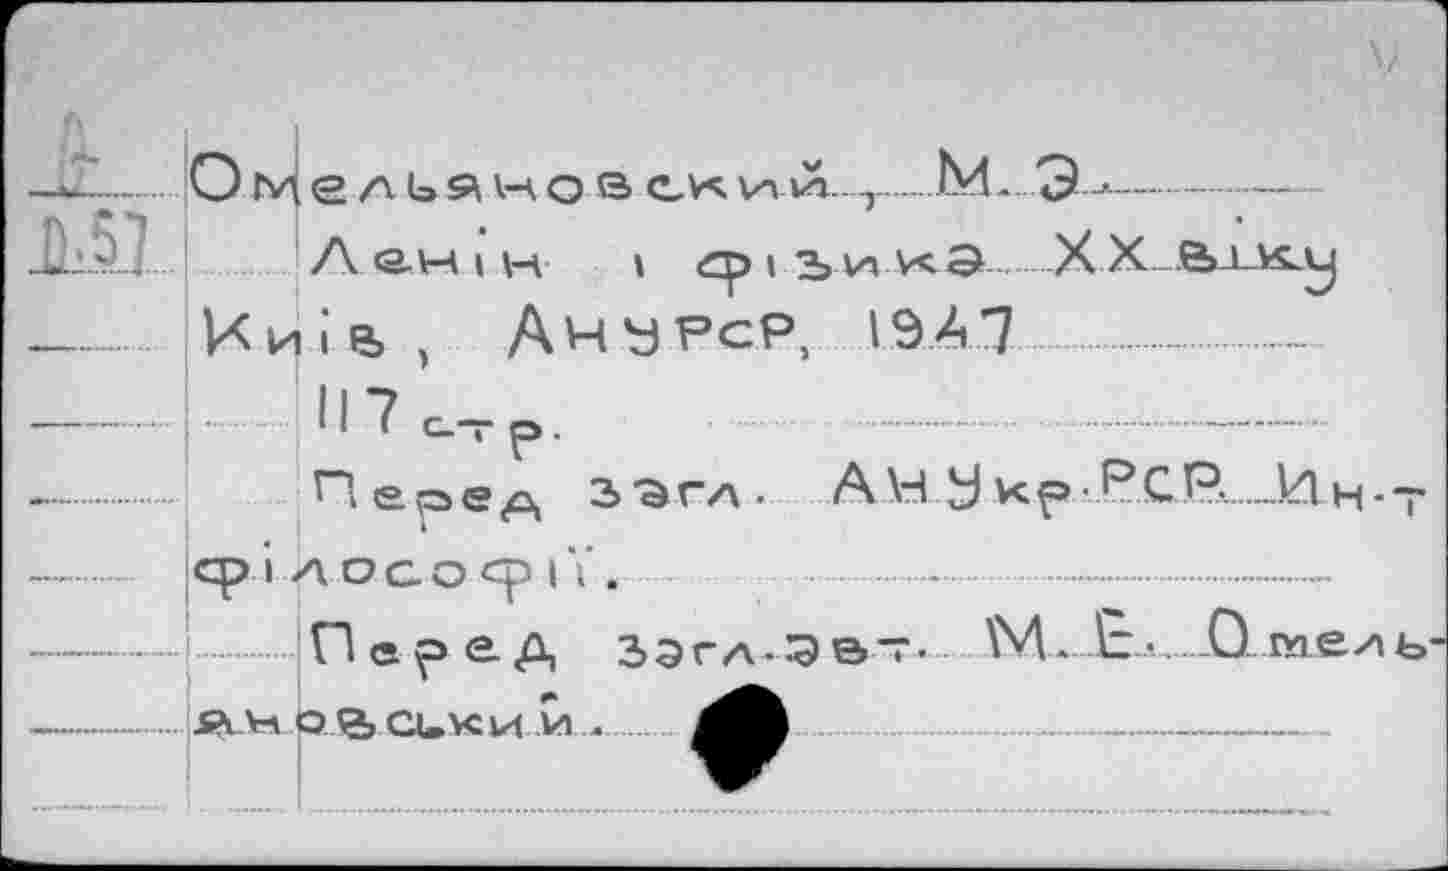 Омельяновский, М. Э.
D.57
Ленін і фізика ХХ віку
Київ, АНУРСР, 1947
117 стр.
Перед загл. АН Укр.РСР. Ин-т
філософії.
Перед загл.авт. М. Е. Омель-
яновський.